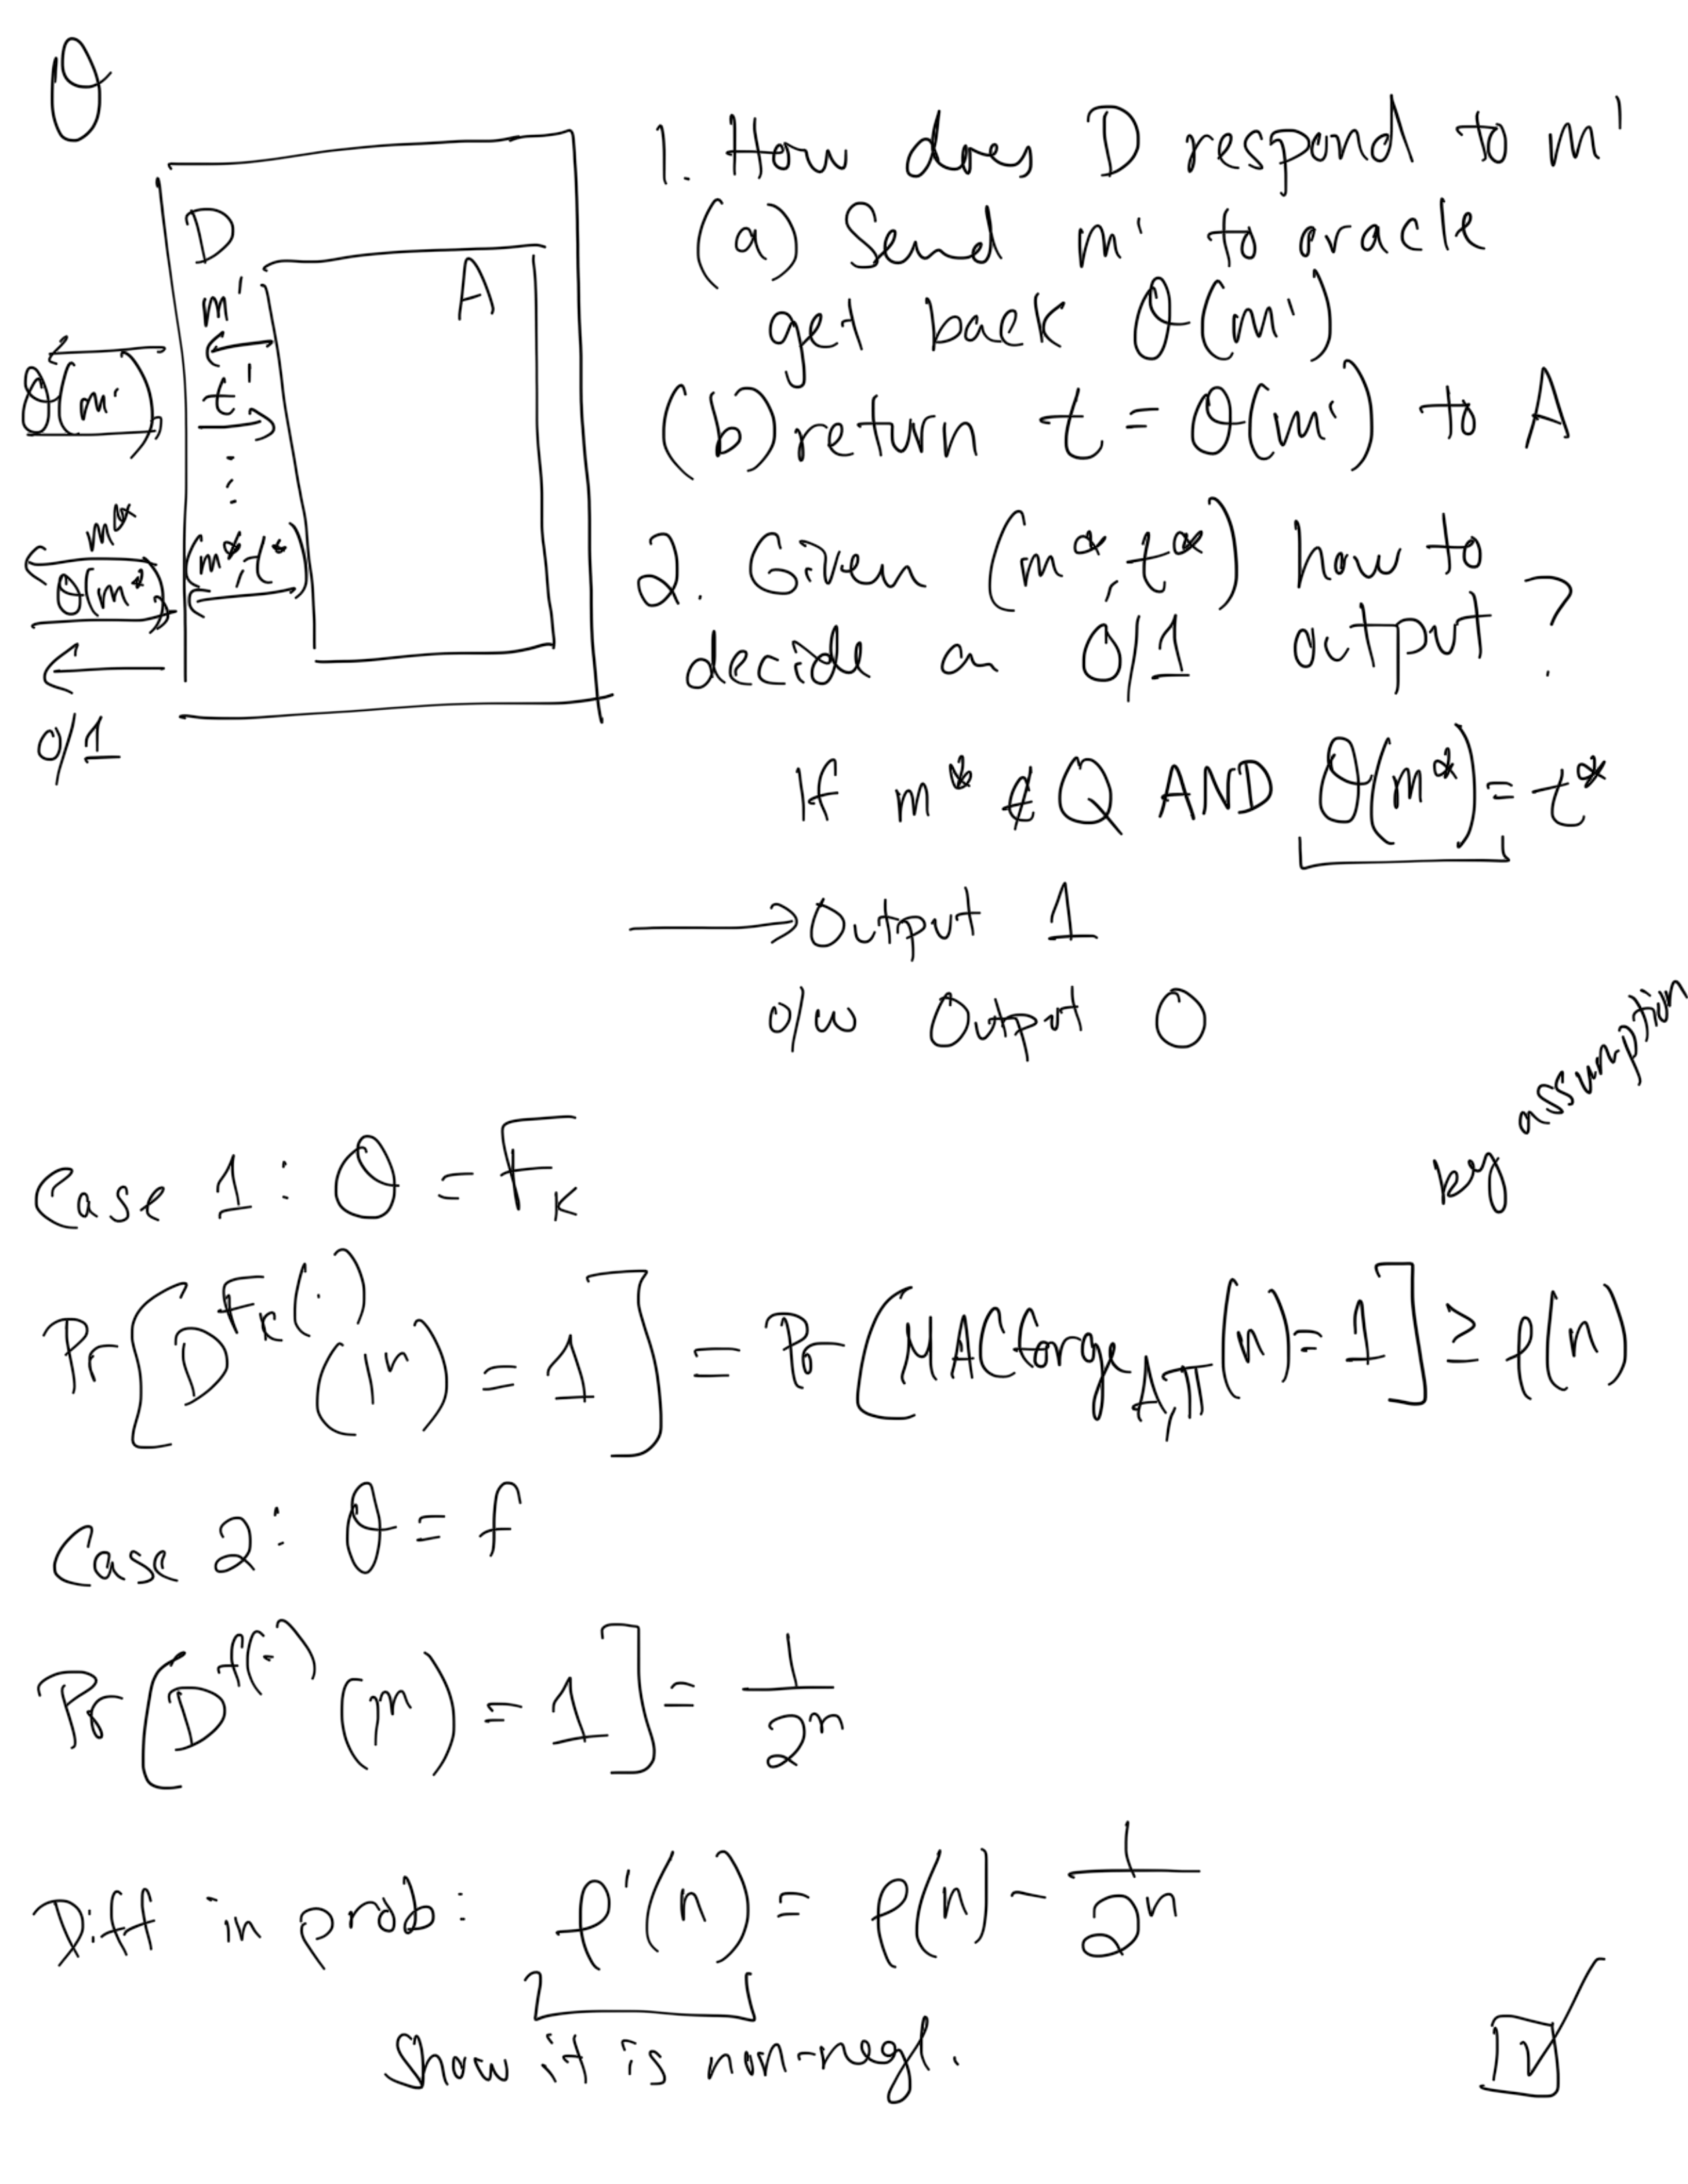 O
D
A
m'
O(m')
t'
⋮
m*
(m*, t*)
O(m*)
0/1
1. How does D respond to m'
(a) Send m' to oracle
get back O(m')
(b) return t = O(m') to A
2. Given (m*, t*) how to
decide on 0/1 output ?
If m* ∉ Q AND O(m*) = t*
→ Output 1
o/w Output 0
by assumption
Case 1: O = F_K
Pr[D^{F_K(·)}(1^n) = 1] = Pr[MACforge_{A,Π}(n) = 1] ≥ ρ(n)
Case 2: O = f
Pr[D^{f(·)}(1^n) = 1] = 1/2^n
Diff in prob: ρ'(n) = ρ(n) - 1/2^n
Show it is non-negl.